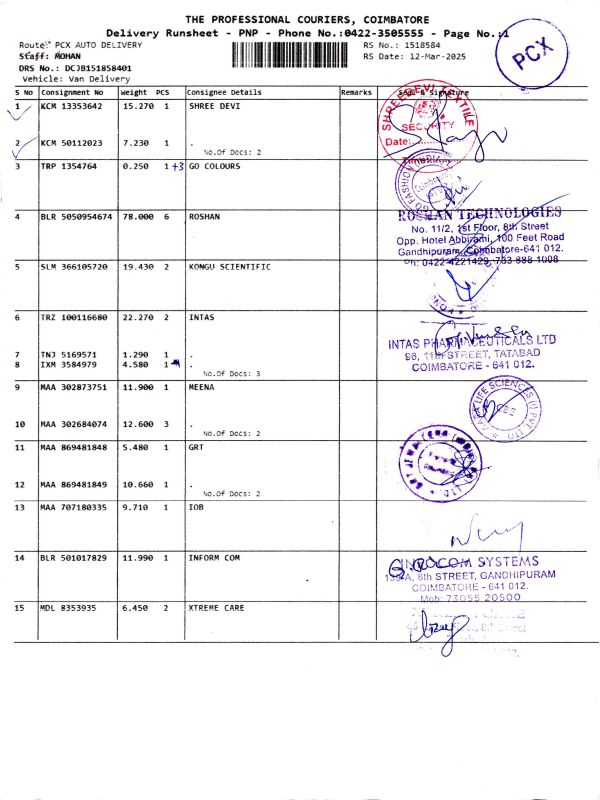 THE PROFESSIONAL COURIERS, COIMBATORE
Delivery Runsheet - PNP - Phone No.:0422-3505555 - Page No.:1
PCX
Route: PCX AUTO DELIVERY
RS No.: 1518584
Staff: MOHAN
RS Date: 12-Mar-2025
DRS No.: DCJB151858401
Vehicle: Van Delivery
S No Consignment No Weight PCS Consignee Details Remarks Seal & Signature
1 KCM 13353642 15.270 1 SHREE DEVI
SHREE DEVI TEXTILE
SECURITY
Date:
2 KCM 50112023 7.230 1 .
No.Of Docs: 2
3 TRP 1354764 0.250 1 +3 GO COLOURS
4 BLR 5050954674 78.000 6 ROSHAN
ROSHAN TECHNOLOGIES
No. 11/2, 1st Floor, 8th Street
Opp. Hotel Abbirami, 100 Feet Road
Gandhipuram, Coimbatore-641 012.
Ph: 0422-4221429, 733 888 1008
5 SLM 366105720 19.430 2 KONGU SCIENTIFIC
6 TRZ 100116680 22.270 2 INTAS
INTAS PHARMACEUTICALS LTD
98, 11th STREET, TATABAD
COIMBATORE - 641 012.
7 TNJ 5169571 1.290 1 .
8 IXM 3584979 4.580 1 .
No.Of Docs: 3
9 MAA 302873751 11.900 1 MEENA
LIFE SCIENCES (I) PVT. LTD.
10 MAA 302684074 12.600 3 .
No.Of Docs: 2
11 MAA 869481848 5.480 1 GRT
12 MAA 869481849 10.660 1 .
No.Of Docs: 2
13 MAA 707180335 9.710 1 IOB
14 BLR 501017829 11.990 1 INFORM COM
SYSTEMS
8th STREET, GANDHIPURAM
COIMBATORE - 641 012.
Mob: 73055 20500
15 MDL 8353935 6.450 2 XTREME CARE